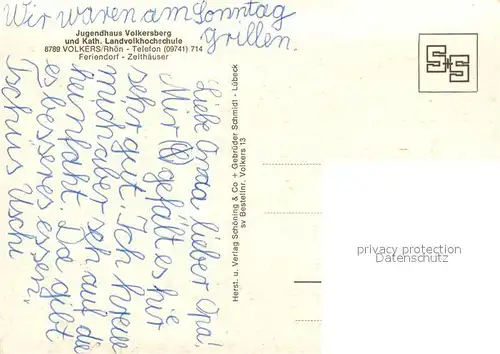 Wir waren am Sonntag
Grillen.
Jugendhaus Volkersberg
und Kath. Landvolkhochschule
8789 VOLKERS/Rhön - Telefon (09741) 714
Feriendorf - Zelthäuser
Liebe Oma, lieber Opa!
Mir gefält es hir
sehr gut. Ich freue
mich aber seh auf die
heimfaht. Da gibt
es besseres essen
Tschüs Uschi
Herst. u. Verlag Schöning & Co + Gebrüder Schmidt - Lübeck
sv Bestellnr. Volkers 13
S+S
privacy protection
Datenschutz